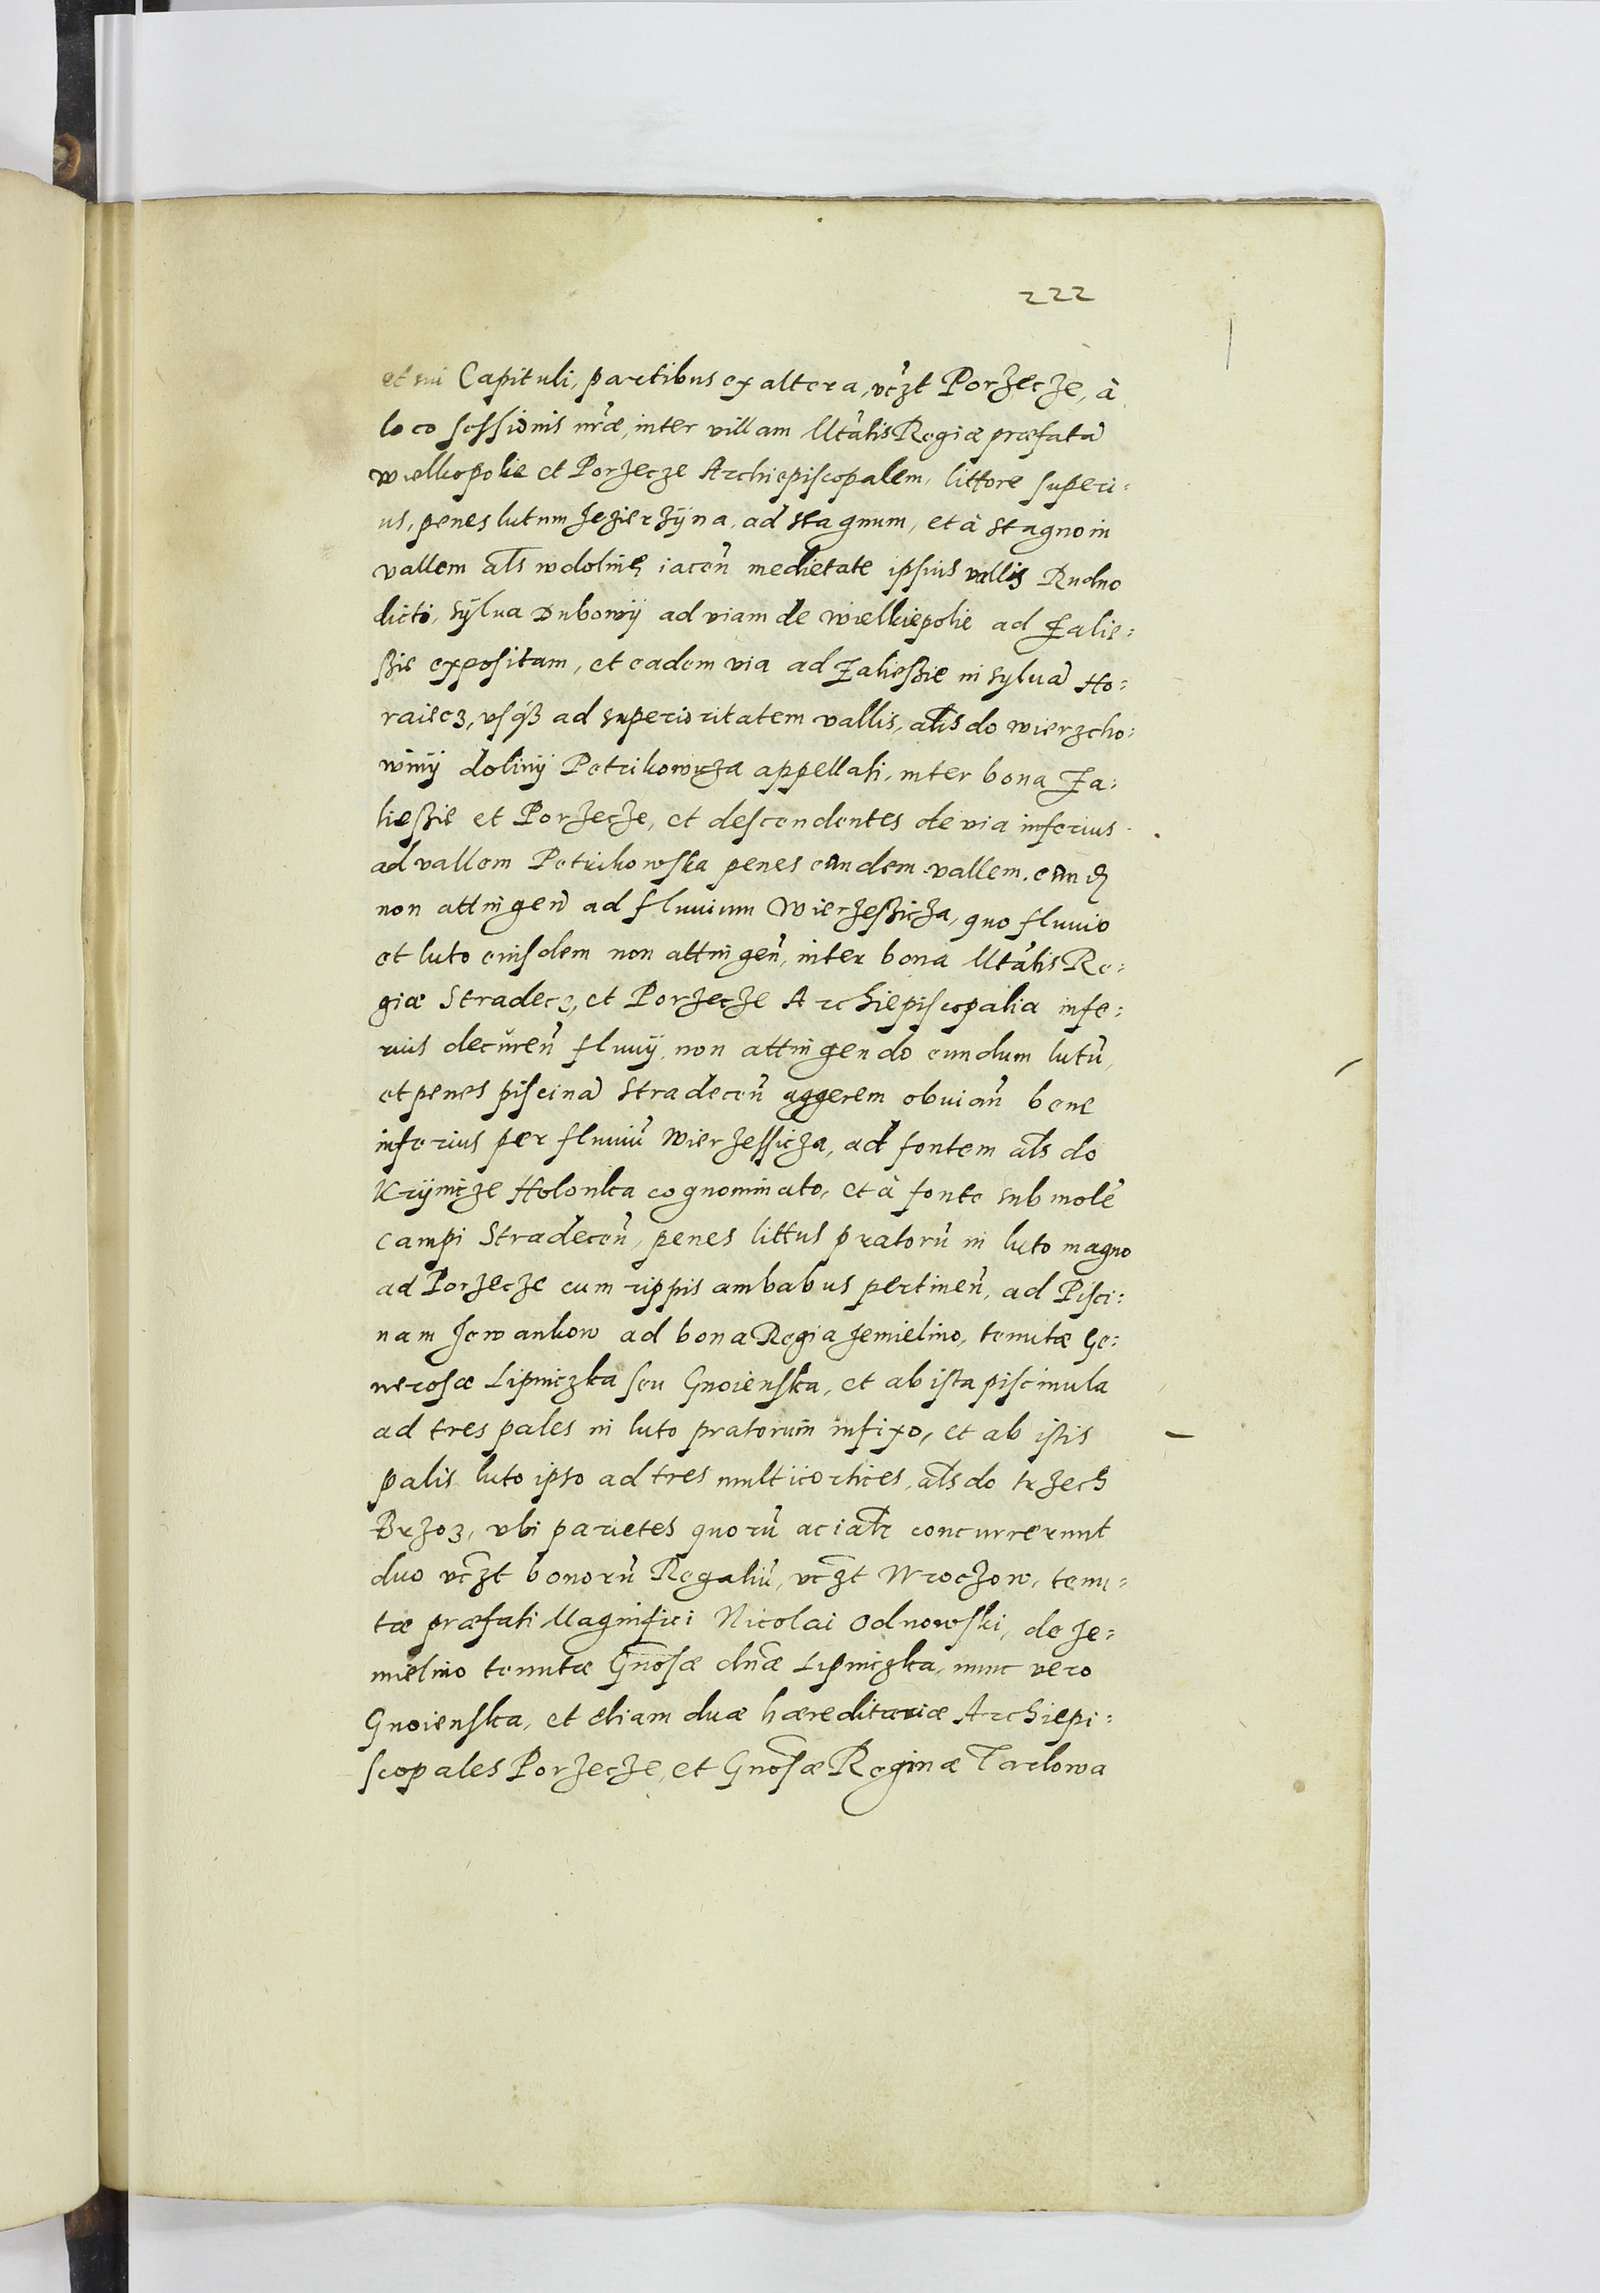 222
et sui Capituli, partibus ex altera, vczt Porzecze, à
loco sessionis nrãe, inter villam Mtãtis Regiæ præfatã
wielkopolie et Porzecze Archiepiscopalem, littore superi:
us, penes lutum Jezierzÿna, ad stagnum, et à stagno in
vallem als w dolinę iaceñ medietate ipsius vallis Rudno
dicti, sÿlva Dubowÿ ad viam de wielkiepolie ad Zalie:
ßie expositam, et eadem via ad Zalieszie in sylvã Ho:
raiecz, usq3 ad superioritatem vallis, als do wierzcho:
winÿ dolinÿ Petrikowcza appellati, inter bona Za:
lieszie et Porzecze, et descendentes de via inferius
ad vallem Petrikowska penes eandem vallem, eand
non attingeñ ad fluvium Wierzeszicza, quo fluvio
et luto eiusdem non attingeñ, inter bona Mtãtis Re:
giæ Stradecz, et Porzecze Archiepiscopalia infe:
rius decureñ fluvÿ, non attingendo eundum lutũ,
et penes piscinã Stradeceñ aggerem obviañ bene
inferius per fluviũ Wierzessicza, ad fontem als do
Krÿnicze Holonka cognominato, et à fonte sub molẽ
campi Stradeceñ, penes littus pratorũ in luto magno
ad Porzecze cum rippis ambabus pertineñ, ad Pisci:
nam Jewankow ad bona Regia Jemielino, tenutæ Ge:
nerosæ Lipniczka seu Gnoienska, et ab ista piscinula
ad tres pales in luto pratorum infixo, et ab istis
palis luto ipso ad tres multicortices, als do trzech
Brzoz, ubi parietes quorũ acialr concurrerunt
duo vczt bonorũ Regaliũ, vczt Wroczow, tenu:
tæ præfati Magnifici Nicolai Odnowski, de Je:
mielino tenutæ Gnosæ dnæ Lipniczka, nunc vero
Gnoienska, et etiam duæ hæreditariæ Archiepi:
scopales Porzecze, et Gnosæ Reginæ Tarlowa